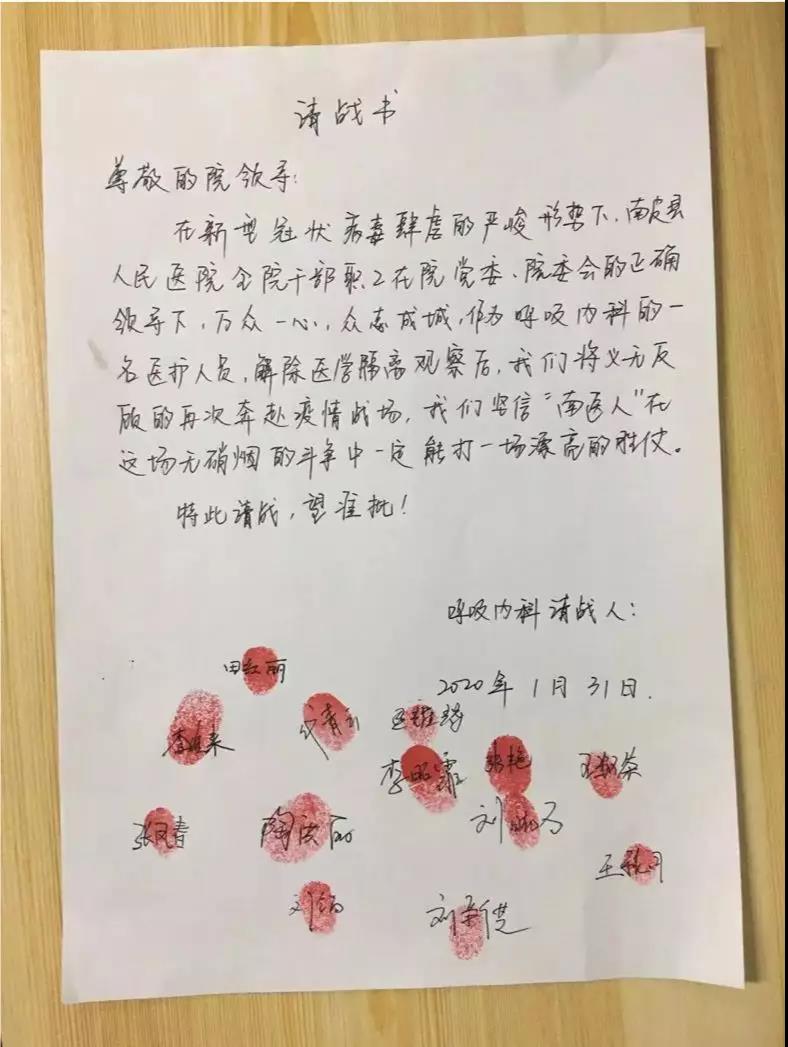 请战书
尊敬的院领导:
在新型冠状病毒肆虐的严峻形势下,南皮县
人民医院全院干部职工在院党委、院委会的正确
领导下,万众一心,众志成城,作为呼吸内科的一
名医护人员,解除医学隔离观察后,我们将义无反
顾的再次奔赴疫情战场,我们坚信“南医人”在
这场无硝烟的斗争中一定能打一场漂亮的胜仗。
特此请战,望准批!
呼吸内科请战人:
2020年1月31日.
田红丽
张艳
张风春